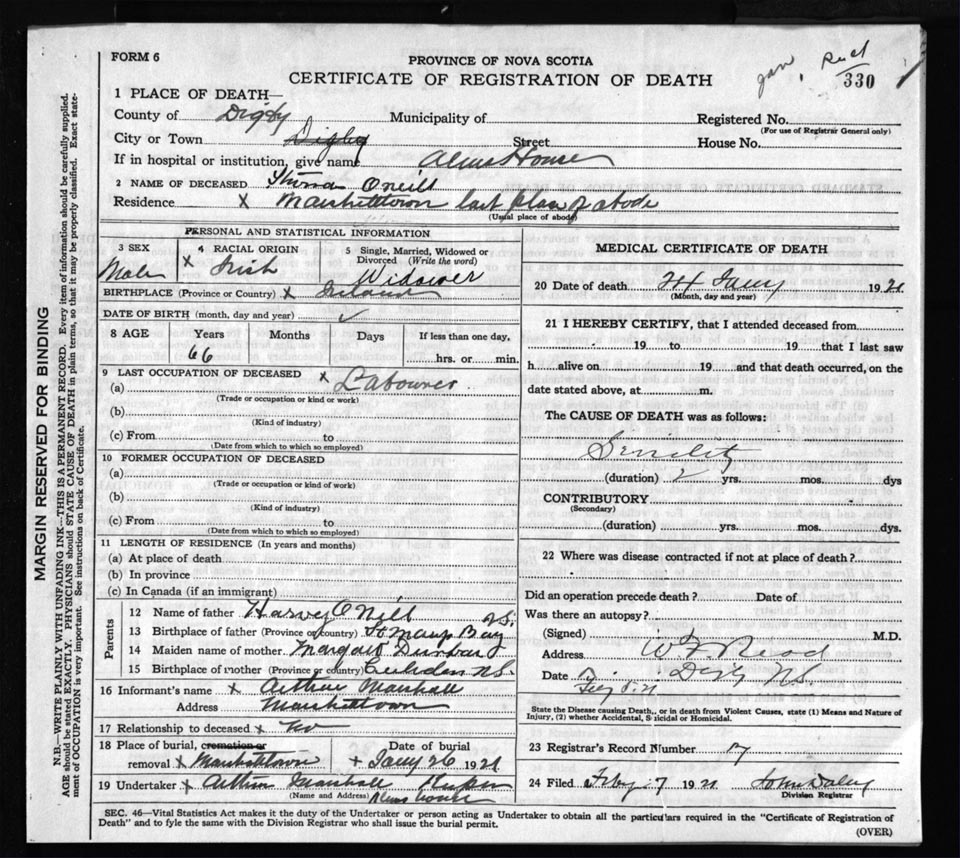 FORM 6
PROVINCE OF NOVA SCOTIA
CERTIFICATE OF REGISTRATION OF DEATH
Jan. Recd
330
1 PLACE OF DEATH—
County of Digby Municipality of Registered No.
(For use of Registrar General only)
City or Town Digby Street House No.
If in hospital or institution, give name Alms House
2 NAME OF DECEASED Oneill
Residence X Marshalltown last place of abode
(Usual place of abode)
PERSONAL AND STATISTICAL INFORMATION
3 SEX Male
4 RACIAL ORIGIN X Irish
5 Single, Married, Widowed or Divorced (Write the word) Widower
BIRTHPLACE (Province or Country) X Ireland
DATE OF BIRTH (month, day and year) ✓
8 AGE Years 66 Months Days If less than one day, hrs. or min.
9 LAST OCCUPATION OF DECEASED X
(a) Labourer
(Trade or occupation or kind or work)
(b)
(Kind of industry)
(c) From to
(Date from which to which so employed)
10 FORMER OCCUPATION OF DECEASED
(a)
(Trade or occupation or kind of work)
(b)
(Kind of industry)
(c) From to
(Date from which to which so employed)
11 LENGTH OF RESIDENCE (In years and months)
(a) At place of death
(b) In province
(c) In Canada (if an immigrant)
Parents
12 Name of father Harvey O'Neill
13 Birthplace of father (Province or country) St Marys Bay N.S.
14 Maiden name of mother Margaret Dunbar
15 Birthplace of mother (Province or country) N.S.
16 Informant's name X Arthur Marshall
Address Marshalltown
17 Relationship to deceased X No
18 Place of burial, cremation or removal X Marshalltown Date of burial + Jany 26 1921
19 Undertaker X Arthur Marshall Keeper
(Name and Address) Alms house
MEDICAL CERTIFICATE OF DEATH
20 Date of death 24 Jany 1921
(Month, day and year)
21 I HEREBY CERTIFY, that I attended deceased from
19 to 19 that I last saw
h alive on 19 and that death occurred, on the
date stated above, at m.
The CAUSE OF DEATH was as follows:
Senility
(duration) 2 yrs. mos. dys
CONTRIBUTORY
(Secondary)
(duration) yrs. mos. dys.
22 Where was disease contracted if not at place of death?
Did an operation precede death? Date of
Was there an autopsy?
(Signed) M.D.
Address W F Read
Date Digby N.S.
Feby 5. 21
State the Disease causing Death, or in death from Violent Causes, state (1) Means and Nature of Injury, (2) whether Accidental, Suicidal or Homicidal.
23 Registrar's Record Number 17
24 Filed Feby 7 1921 John Daley
Division Registrar
SEC. 46—Vital Statistics Act makes it the duty of the Undertaker or person acting as Undertaker to obtain all the particulars required in the "Certificate of Registration of
Death" and to fyle the same with the Division Registrar who shall issue the burial permit.
(OVER)
MARGIN RESERVED FOR BINDING
N.B.—WRITE PLAINLY WITH UNFADING INK—THIS IS A PERMANENT RECORD. Every item of information should be carefully supplied.
AGE should be stated EXACTLY. PHYSICIANS should STATE CAUSE OF DEATH in plain terms, so that it may be properly classified. Exact state-
ment of OCCUPATION is very important. See instructions on back of Certificate.